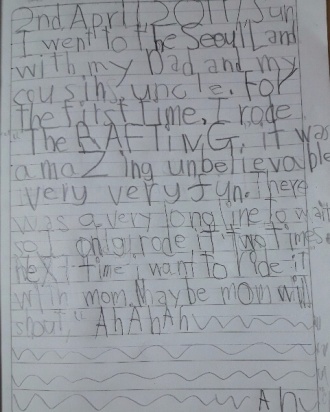 2nd April 2017/Sun
I went to the Seoul Land
with my Dad and my
cousins, uncle. For
the first time, I rode
"The RAFTING. it was
amazing unbelievable
very very fun. There
was a very long line to wait
so I only rode it two times.
next time, I want to ride it
with mom. Maybe mom will
shout, "AhAhAh
Ah